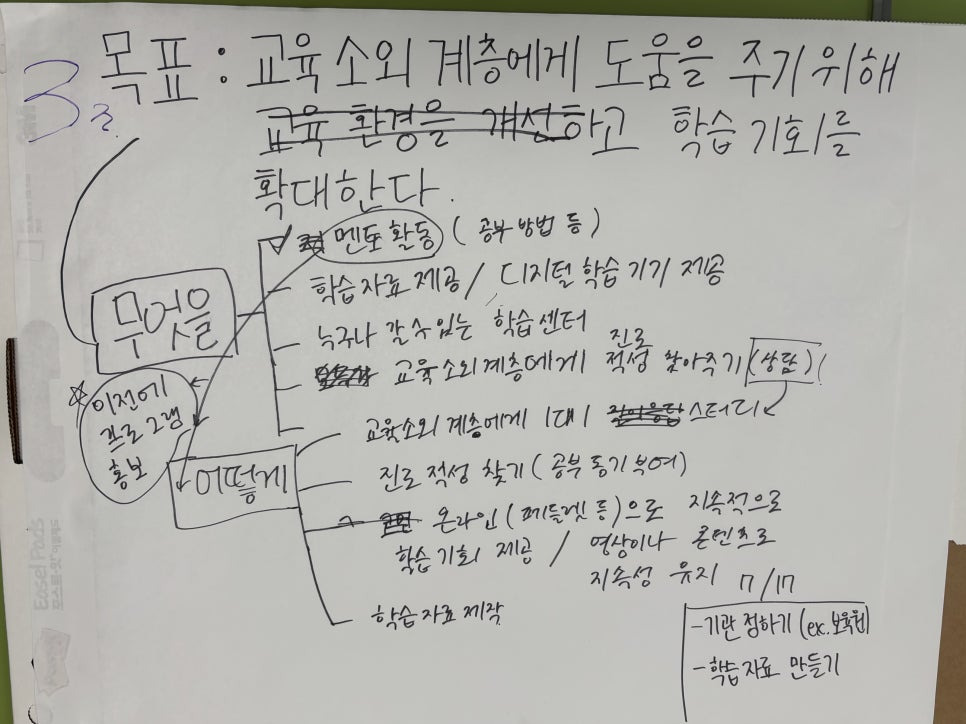 3조
목표 : 교육 소외 계층에게 도움을 주기 위해
교육 환경을 개선하고 학습 기회를
확대한다.
멘토 활동 ( 공부 방법 등 )
학습 자료 제공 / 디지털 학습 기기 제공
무엇을
누구나 갈 수 있는 학습 센터
교육 소외 계층에게 진로 적성 찾아주기 (상담)
이전에
프로그램
홍보
교육 소외 계층에게 1대1 스터디
어떻게
진로 적성 찾기 ( 공부 동기 부여 )
온라인 ( 패들렛 등 ) 으로 지속적으로
학습 기회 제공 / 영상이나 콘텐츠로
지속성 유지
학습 자료 제작
7/17
- 기관 정하기 (ex. 보육원)
- 학습 자료 만들기
Easel Pads